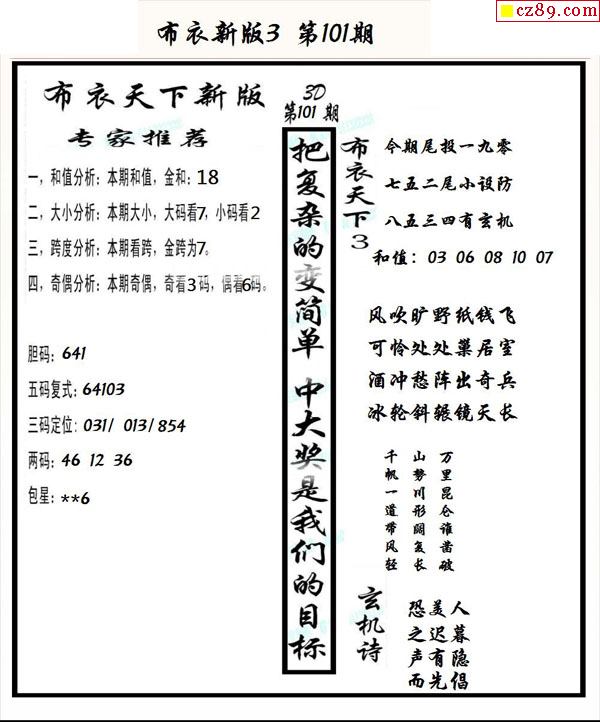 cz89.com
布衣新版3 第101期
布衣天下新版
专家推荐
一，和值分析：本期和值，金和：18
二，大小分析：本期大小，大码看7，小码看2
三，跨度分析：本期看跨，金跨为7。
四，奇偶分析：本期奇偶，奇看3码，偶看6码。
胆码：641
五码复式：64103
三码定位：031/ 013/854
两码：46 12 36
包星：**6
3D
第101期
把复杂的变简单 中大奖是我们的目标
布衣天下3
今期尾投一九零
七五二尾小设防
八五三四有玄机
和值：03 06 08 10 07
风吹旷野纸钱飞
可怜处处巢居室
酒冲愁阵出奇兵
冰轮斜辗镜天长
万里昆仑谁凿破
山势川形阔复长
千帆一道带风轻
玄机诗
恐美人
之迟暮
声有隐
而先倡